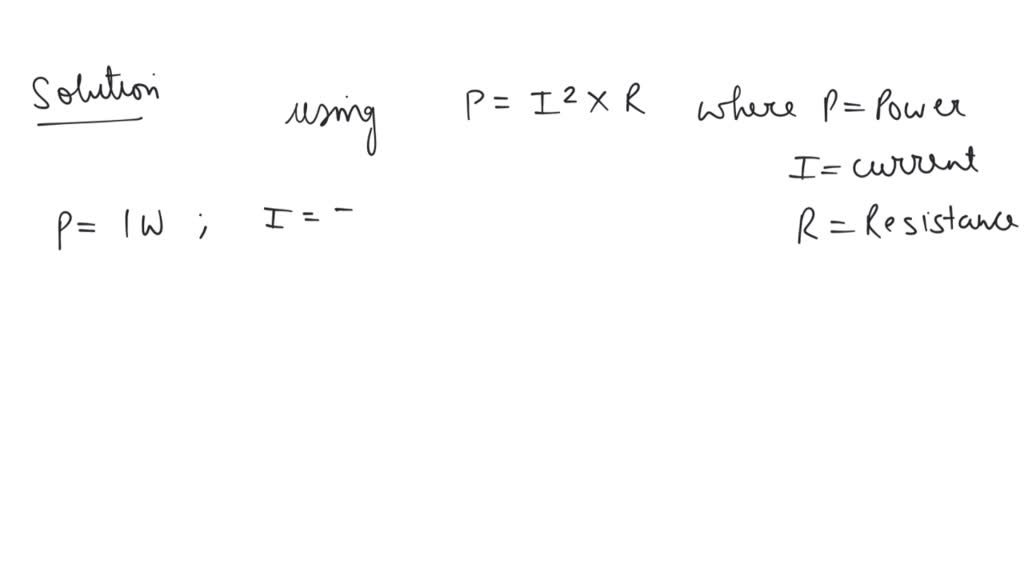 Solution using P = I² × R where P = Power
I = current
P = 1W ; I = -
R = Resistance